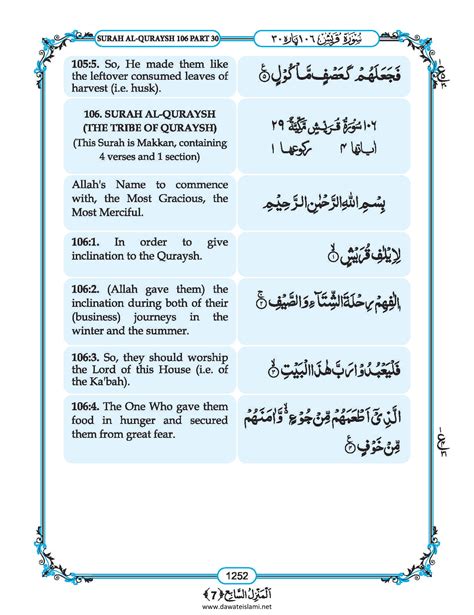 SURAH AL-QURAYSH 106 PART 30
سُوْرَةُ قُرَيْشٍ ١٠٦ پارہ ٣٠
105:5. So, He made them like
the leftover consumed leaves of
harvest (i.e. husk).
فَجَعَلَهُمْ كَعَصْفٍ مَّاْكُوْلٍ ۟﴿۵﴾
106. SURAH AL-QURAYSH
(THE TRIBE OF QURAYSH)
(This Surah is Makkan, containing
4 verses and 1 section)
١٠٦ سُوْرَةُ قُرَيْشٍ مَّكِّيَّةٌ ٢٩
اٰیاتها ۴ رکوعها ١
Allah's Name to commence
with, the Most Gracious, the
Most Merciful.
بِسْمِ اللّٰهِ الرَّحْمٰنِ الرَّحِیْمِ
106:1. In order to give
inclination to the Quraysh.
لِاِیْلٰفِ قُرَیْشٍ ﴿۱﴾
106:2. (Allah gave them) the
inclination during both of their
(business) journeys in the
winter and the summer.
اٖلٰفِهِمْ رِحْلَةَ الشِّتَآءِ وَ الصَّیْفِ ﴿۲﴾
106:3. So, they should worship
the Lord of this House (i.e. of
the Ka'bah).
فَلْیَعْبُدُوْا رَبَّ هٰذَا الْبَیْتِ ﴿۳﴾
106:4. The One Who gave them
food in hunger and secured
them from great fear.
الَّذِیْۤ اَطْعَمَهُمْ مِّنْ جُوْعٍ ۙ وَّ اٰمَنَهُمْ
مِّنْ خَوْفٍ ﴿۴﴾
1252
اَلْمَنْزِلُ السَّابِع ﴿7﴾
www.dawateislami.net